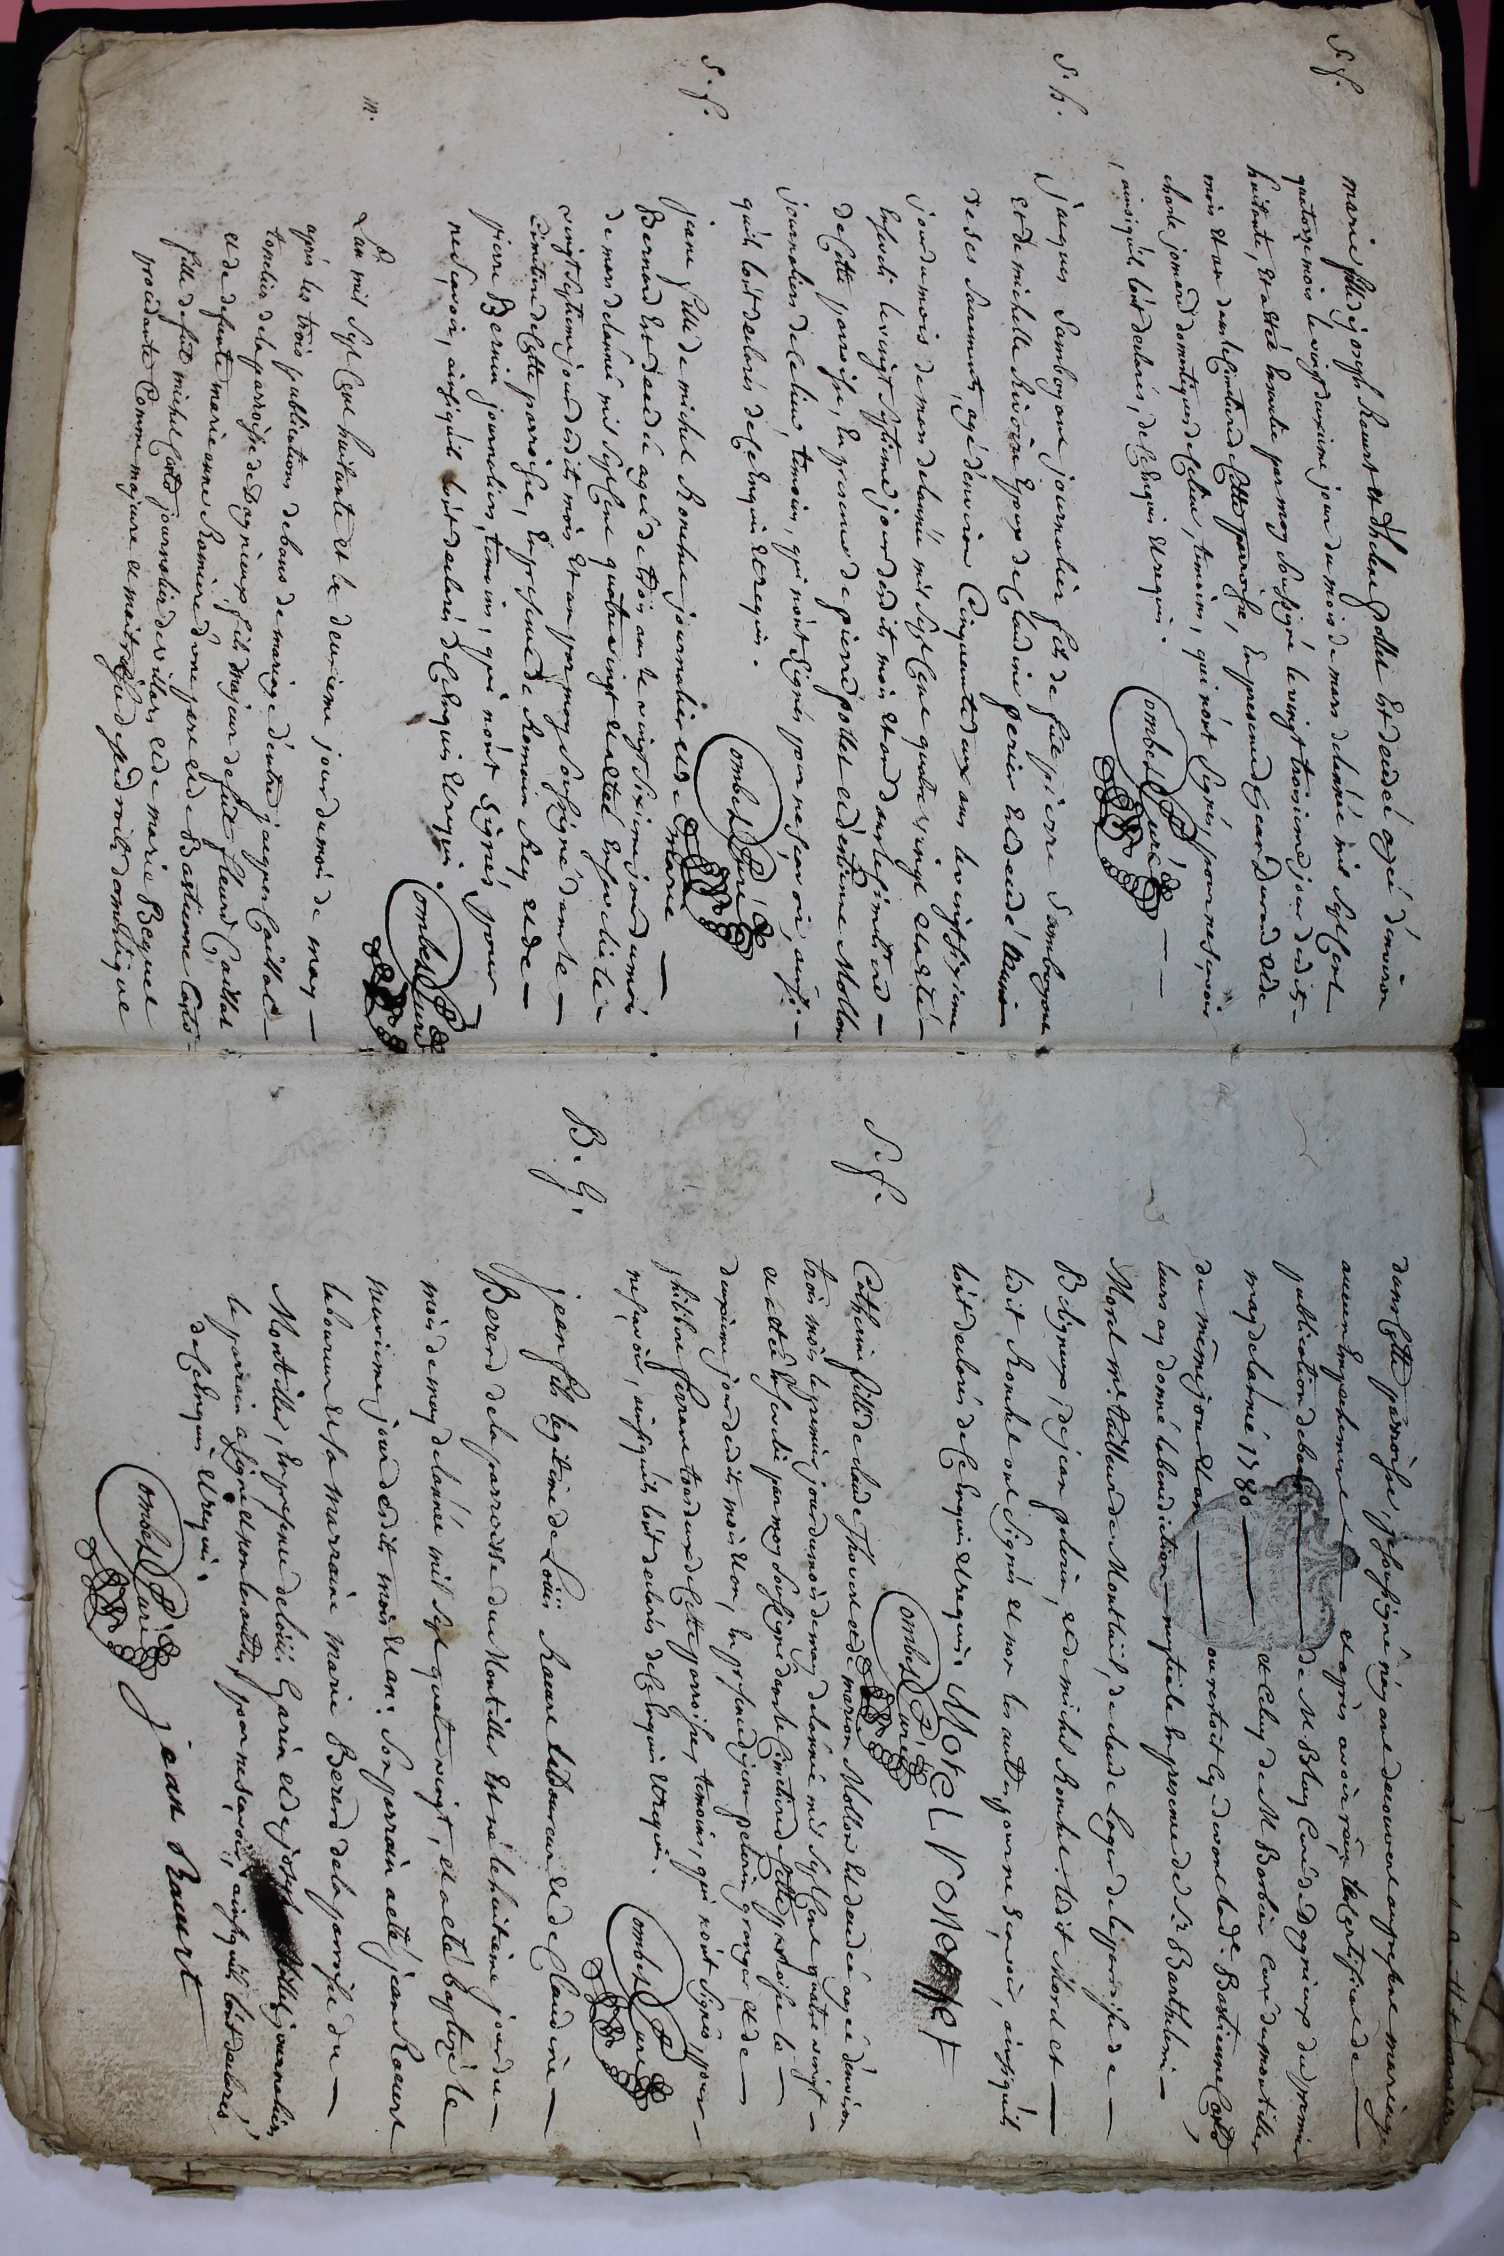 S. f.
marie fille de joseph Raourt et d'helene pollet Est decedeé ageé d'environ
quatorze mois le vingt deuxieme jour du mois de mars de l'année mil sept cent
huitante, et a eté Ensevelie par moy soussigné le vingt troisieme jour desdits
mois et an dans le Cimetiere de Cette paroisse, En presence de jean Durand et de
charle jomard domestiques de Ce lieu, temoins, qui n'ont signés, pour ne sçavoir
ainsi qu'ils l'ont declarés, de Ce Enquis et requis.
Combet Curé
S. h.
jaques Sambogone journalier fils de feu pierre Sambogone
et de michelle Riviere Epoux de Claudine perier Est decedé Muni
de ses Sacrements, agé d'environ Cinquante deux ans le vingt sixieme
jour du mois de mars de l'année mil sept Cent quatre vingt et a eté
Enseveli le vingt septieme jour desdits mois et an dans le Cimetiere
de Cette paroisse, En presence de pierre pollet et d'estienne Mollon
journaliers de Ce lieu, temoins, qui n'ont signés pour ne sçavoir, ainsi
qu'ils l'ont declarés de Ce Enquis et requis.
Combet Curé
S. f.
jeane fille de michel Ronchet journalier et de marie
Bernard Est decedeé ageé de trois ans le vingt sixieme jour du mois
de mars de l'année mil sept Cent quatre vingt et a eteé Ensevelie le
vingt septieme jour desdits mois et an par moy soussigné dans le
Cimetiere de Cette parroisse, En presence de Romain Rey et de
pierre Bernin journaliers, temoins, qui n'ont signés, pour
ne sçavoir, ainsi qu'ils l'ont declarés de Ce Enquis et requis.
Combet Curé
m.
L'an mil sept Cent huitante et le deuxieme jour du mois de may
après les trois publications de bans de mariage d'entre jaques Caillat
tonnelier de la parroisse de Dagnieux fils majeur de feu fleury Caillat
et de defunte marie anne Romier d'une part et de Bastienne Cottó
fille de feu michel Cottó journalier de villars et de marie Beguet
procedante Comme majeure et maitresse de ses droits domestique
dans Cette parroisse, je soussigné n'ayant decouvert aucun present mariage
aucun Empechement et après avoir reçu le Certificat de
publication de bans de M Bluy Curé de Dagnieux du premier
may de l'année 1780 et Celuy de M Barbier Curé du montillier
du même jour et an ou restoit Cy devant lade Bastienne Cottó
leurs ay donné la benediction nuptiale En presence de Sr Barthelemi
Morel me tailleur de Montluel, de claude Loger de la parroisse de
Beligneux, de jean peloin, et de michel Ronchet. ledit Morel et
ledit Ronchet ont signés et non les autres pour ne sçavoir, ainsi qu'ils
l'ont declarés de Ce Enquis et requis. Morel ronchet
Combet Curé
S. f.
Catherine fille de claude Thovert et de marion Mollon Est decedeé ageé d'environ
trois mois le premier jour du mois de may de l'année mil sept Cent quatre vingt
et a eteé Ensevelie par moy soussigné dans le Cimetiere de Cette paroisse le
deuxieme jour desdits mois et an, En presence de jean pelorin granger et de
philibert ferrand tous deux de Cette parroisse, temoins, qui n'ont signés pour
ne sçavoir, ainsi qu'ils l'ont declarés de Ce Enquis et requis.
Combet Curé
B. G.
jean fils legitime de Loüis Raourt laboureur et de Claudine
Bererd de la parroisse du Montillier Est né le huitieme jour du
mois de may de l'année mil sept quatre vingt, et a eté baptizé le
neuvieme jour desdits mois et an. Son parrain a eté jean Raourt
laboureur et sa marraine marie Berend de la parroisse du
Montillier, En presence de loüis Garin et de joseph Mollet journaliers
le parrain a signé et non les autres, pour ne sçavoir, ainsi qu'ils l'ont declarés
de Ce Enquis et requis.
Combet Curé
jean Raourt